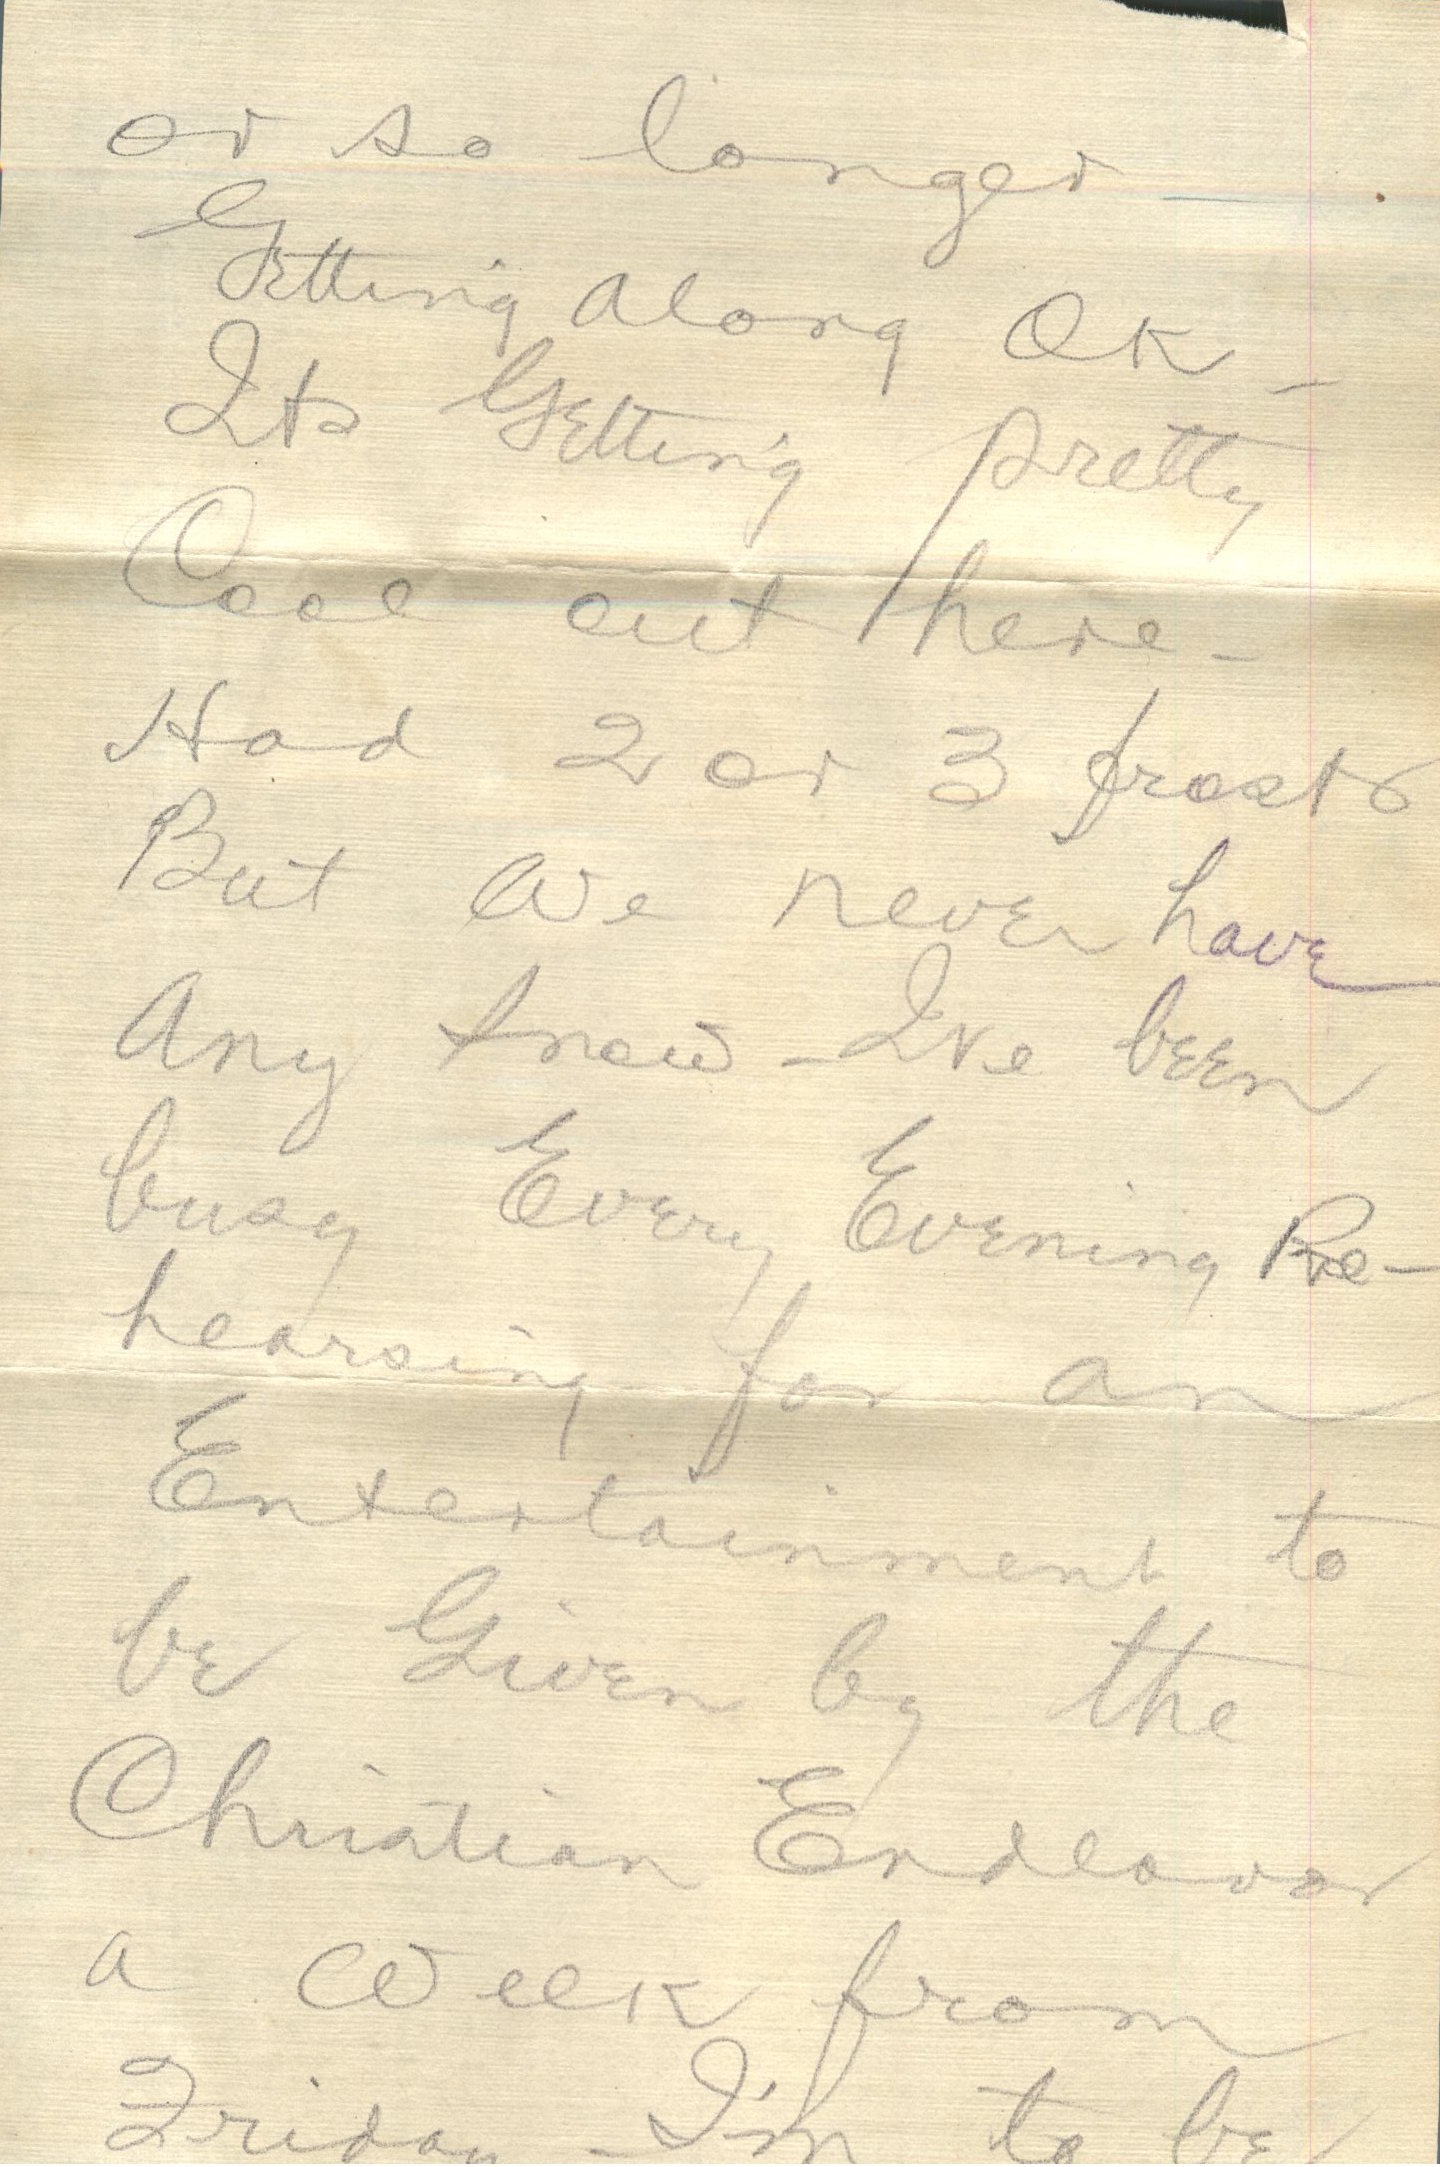 or so longer
Getting along OK -
Its Getting pretty
Cool out here -
Had 2 or 3 frosts
But we never have
Any snow - Ive been
busy Every Evening Re-
hearsing for an
Entertainment to
be Given by the
Christian Endeavor
a week from
Friday - I'm to be